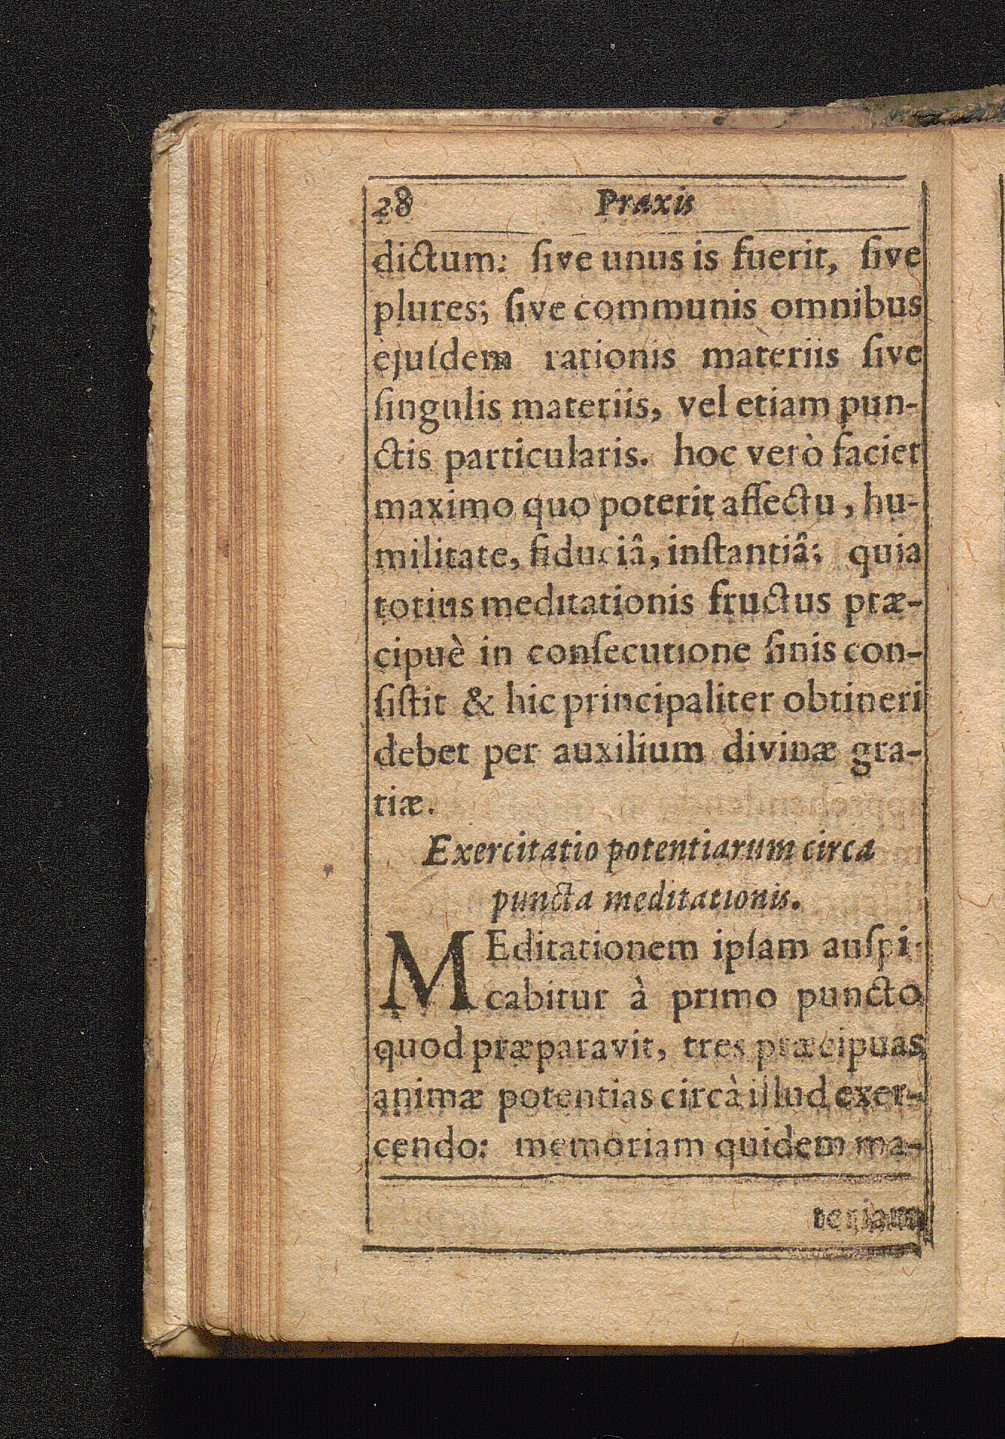 28 Praxis
dictum: ſive unus is fuerit, ſive
plures; ſive communis omnibus
ejuſdem rationis materiis ſive
ſingulis materiis, vel etiam pun-
ctis particularis. hoc verò faciet
maximo quo poterit affectu, hu-
militate, fiduciâ, inſtantiâ; quia
totius meditationis fructus præ-
cipuè in conſecutione finis con-
ſiſtit & hic principaliter obtineri
debet per auxilium divinæ gra-
tiæ.
Exercitatio potentiarum circa
puncta meditationis.
MEditationem ipſam auſpi-
cabitur à primo puncto
quod præparavit, tres præcipuas
animæ potentias circà illud exer-
cendo: memoriam quidem ma-
teriam